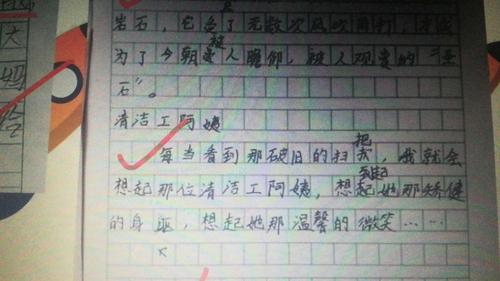 岩石，它了无数次风吹雨打，才成
被
为了今朝人瞻仰，被人观赏的“
石”。
清洁工阿姨
把
每当看到那破旧的扫，我就会
想起那位清洁工阿姨，想起她那矫健
的身，想起她那温馨的微笑……
大
妈